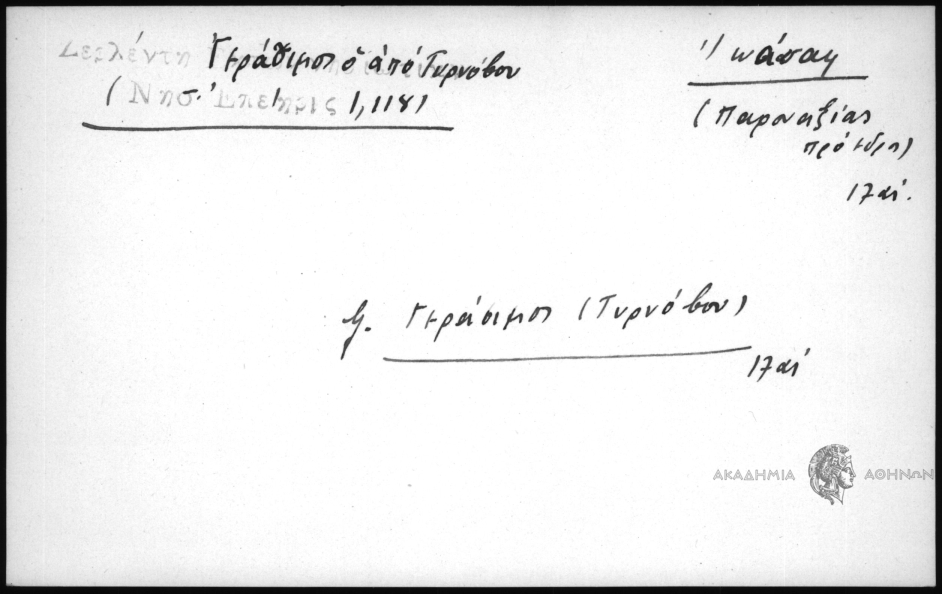 Ζερλέντη Γεράσιμος ὁ ἀπό Τυρνόβου
(Νησ. Ἐπετηρίς 1, 118)
(Παροναξίας
πρόεδρος)
17 αἰ.
βλ. Γεράσιμος (Τυρνόβου)
17 αἰ
ΑΚΑΔΗΜΙΑ ΑΘΗΝΩΝ